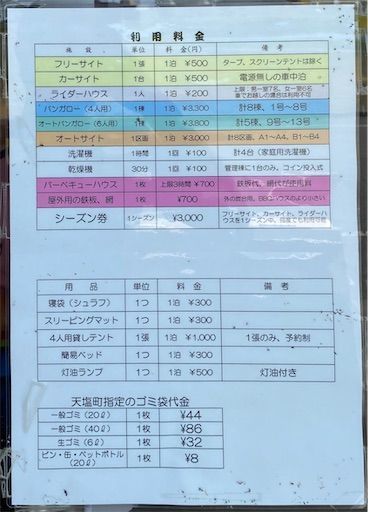 利用料金
施設 単位 料金(円) 備考
フリーサイト 1張 1泊 ¥500 タープ、スクリーンテントは除く
カーサイト 1台 1泊 ¥500 電源無しの車中泊
ライダーハウス 1人 1泊 ¥200 上限：男一室7名、女一室6名
車でお越しの場合は利用不可
バンガロー(4人用) 1棟 1泊 ¥3,300 計8棟、1号〜8号
オートバンガロー(6人用) 1棟 1泊 ¥3,800 計5棟、9号〜13号
オートサイト 1区画 1泊 ¥3,000 計8区画、A1〜A4、B1〜B4
洗濯機 1時間 1回 ¥100 計4台(家庭用洗濯機)
乾燥機 30分 1回 ¥100 管理棟に1台のみ、コイン投入式
バーベキューハウス 1枚 上限3時間 ¥700 鉄板代、網代が使用料
屋外用の鉄板、網 1枚 ¥700 外の舞台用。BBQハウスのより小さい
シーズン券 1シーズン ¥3,000 フリーサイト、カーサイト、ライダーハ
ウスを1シーズン、何度でも利用可能
用品 単位 料金 備考
寝袋(シュラフ) 1つ 1泊 ¥300
スリーピングマット 1つ 1泊 ¥300
4人用貸しテント 1張 1泊 ¥1,000 1張のみ、予約制
簡易ベッド 1つ 1泊 ¥300
灯油ランプ 1つ 1泊 ¥500 灯油付き
天塩町指定のゴミ袋代金
一般ゴミ(20ℓ) 1枚 ¥44
一般ゴミ(40ℓ) 1枚 ¥86
生ゴミ(6ℓ) 1枚 ¥32
ビン・缶・ペットボトル
(20ℓ) 1枚 ¥8